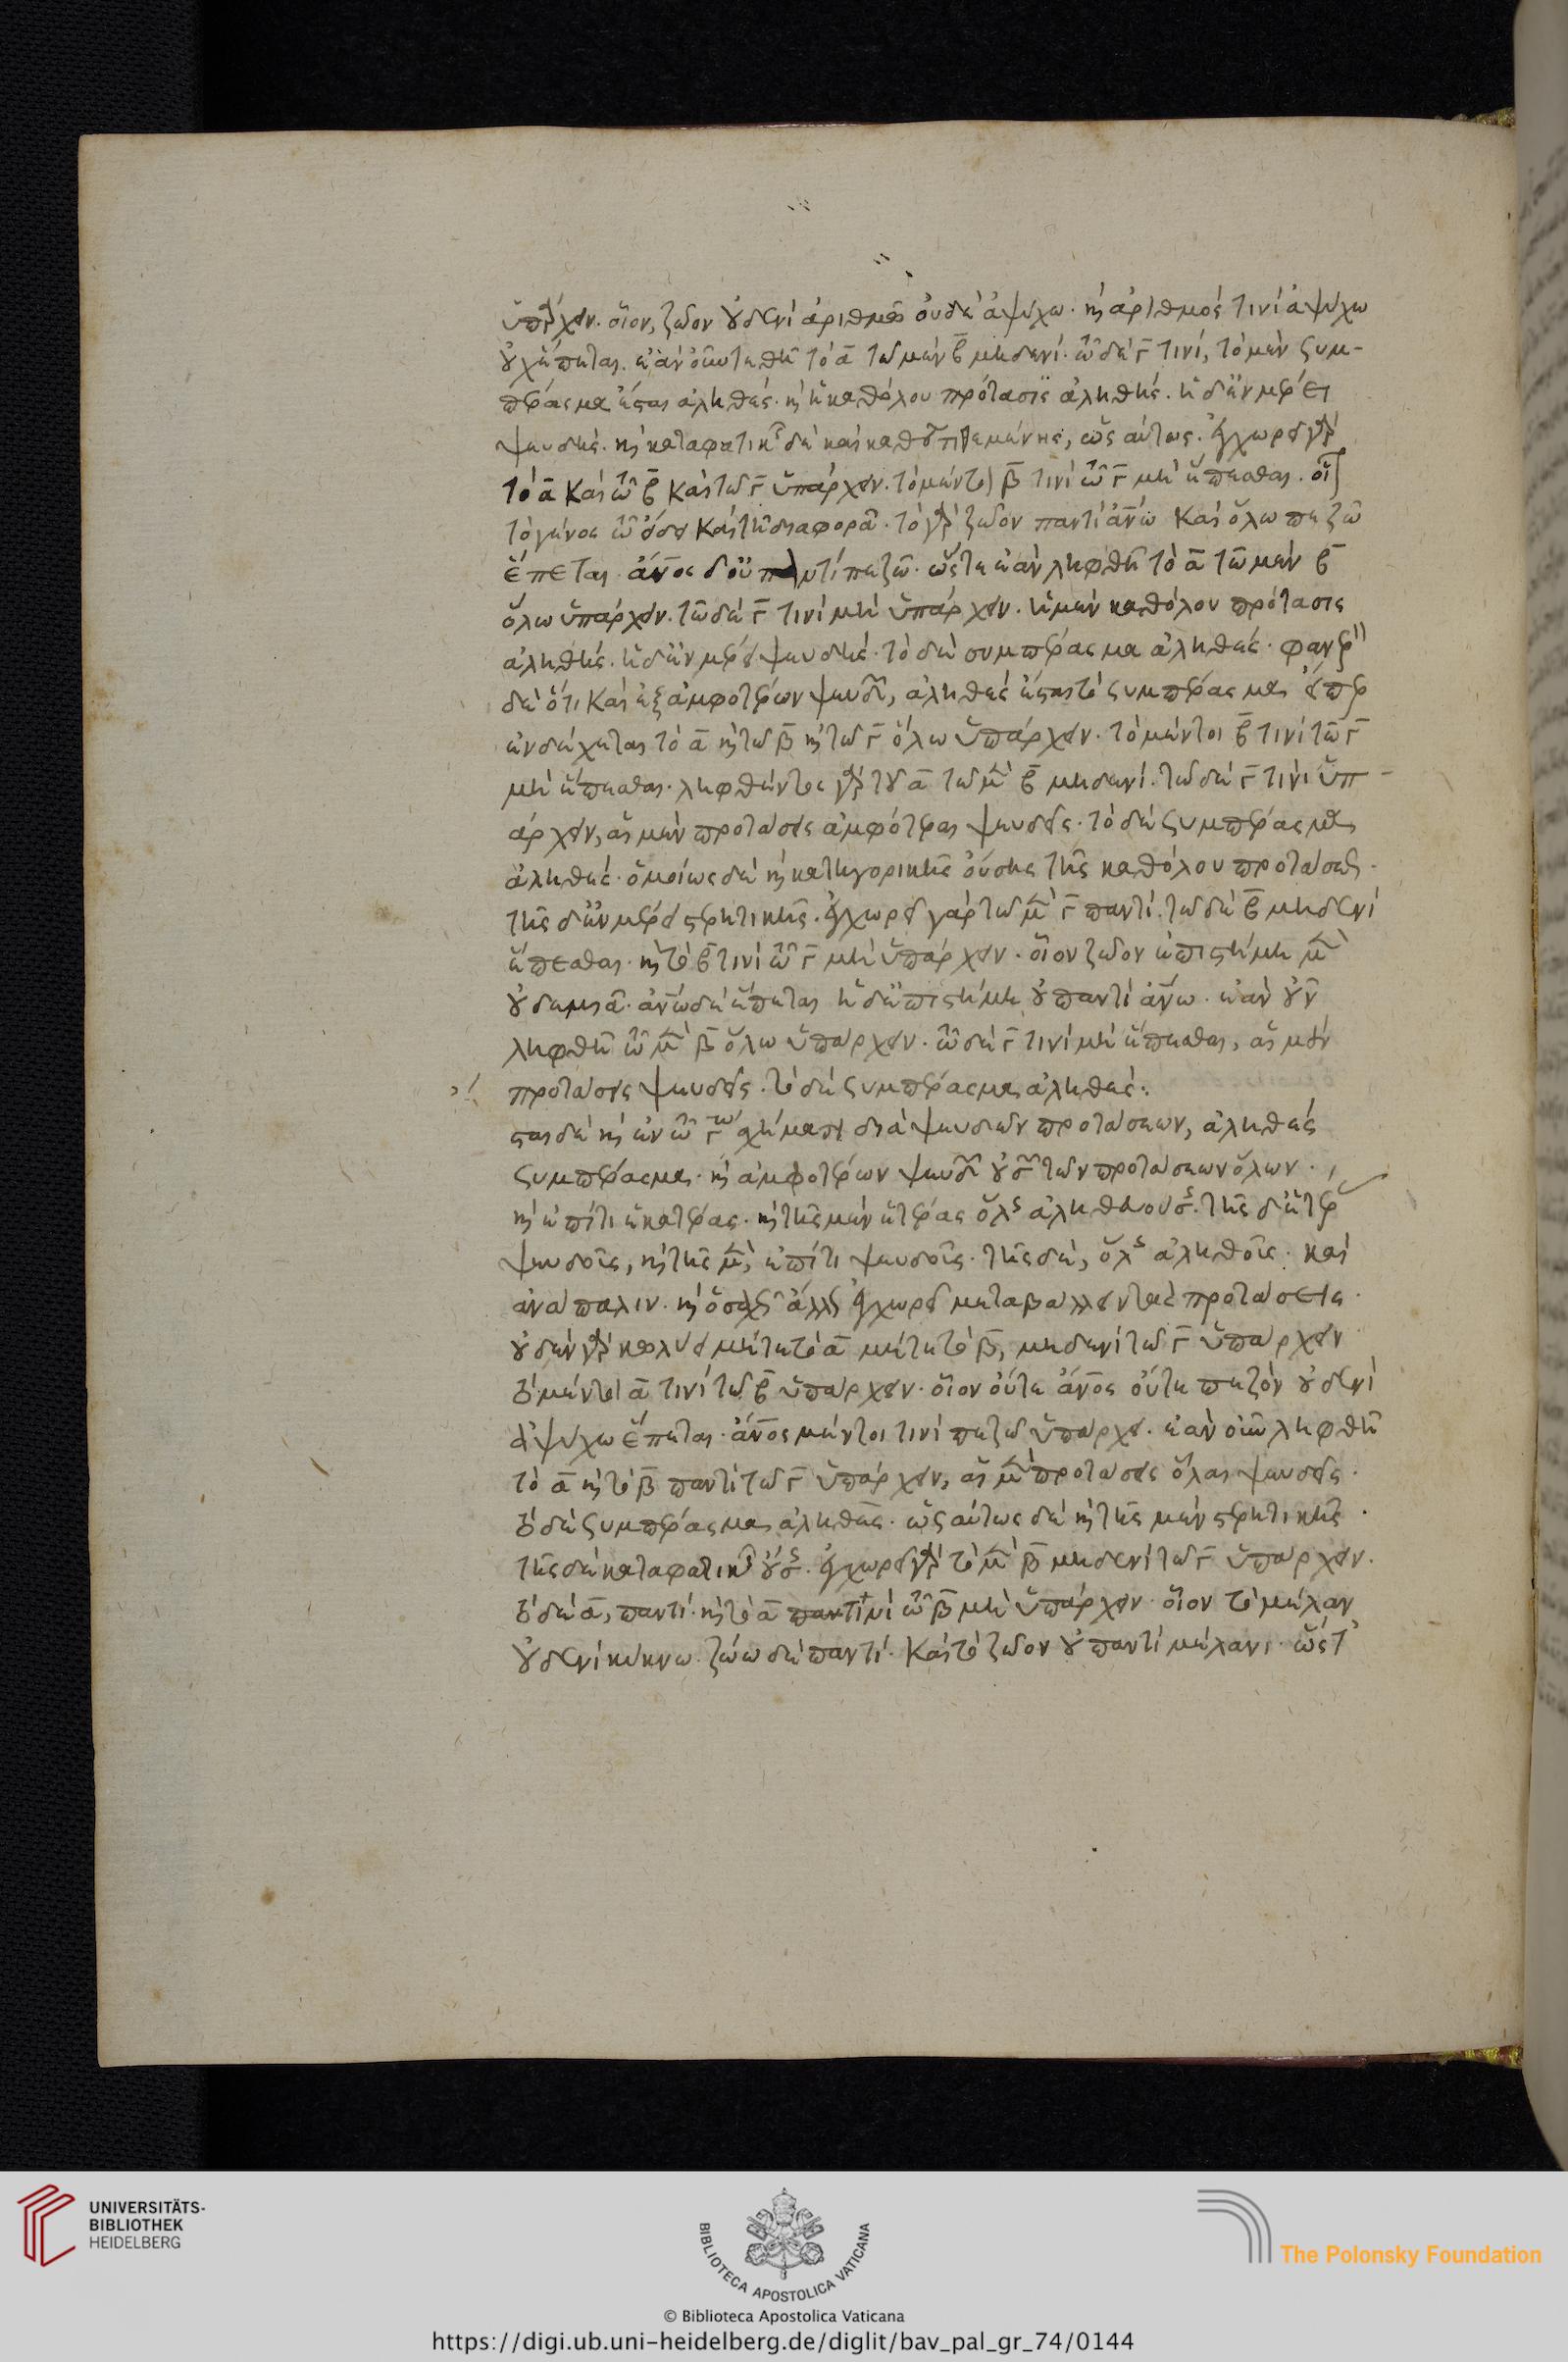 ὑπάρχειν. οἷον, ζῶον οὐδενὶ ἀριθμῶ οὐδὲ ἀψύχω. καὶ ἀριθμὸς τινὶ ἀψύχω
οὐχ ἕπεται. ἐὰν οὖν τεθῆ τὸ α τῶ μὲν β μηδενί. τῶ δὲ γ τινί, τὸ μὲν συμ-
πέρασμα ἔσται ἀληθές. καὶ ἡ καθόλου πρότασις ἀληθής. ἡ δ' ἐν μέρει
ψευδής. καὶ καταφατικῆς δὲ καὶ καθόλου τιθεμένης, ὡσαύτως. ἐγχωρεῖ γὰρ
τὸ α καὶ τῶ β καὶ τῶ γ ὑπάρχειν. τὸ μέντοι β τινὶ τῶ γ μὴ ἕπεσθαι. οἷον
τὸ γένος τῶ εἴδει καὶ τῆ διαφορᾶ. τὸ γὰρ ζῶον παντὶ ἀνω καὶ ὅλω πεζῶ
ἕπεται. ἄνος δ' οὐ παντὶ πεζῶ. ὥστε ἐὰν ληφθῆ τὸ α τῶ μὲν β
ὅλω ὑπάρχειν. τῶ δὲ γ τινὶ μὴ ὑπάρχειν. ἡ μὲν καθόλου πρότασις
ἀληθής. ἡ δ' ἐν μέρει ψευδής. τὸ δὲ συμπέρασμα ἀληθές. φανερὸν
δὲ ὅτι καὶ ἐξ ἀμφοτέρων ψευδῶν, ἀληθὲς ἔσται τὸ συμπέρασμα εἴπερ
ἐνδέχεται τὸ α καὶ τῶ β καὶ τῶ γ ὅλω ὑπάρχειν. τὸ μέντοι β τινὶ τῶ γ
μὴ ἕπεσθαι. ληφθέντος γὰρ τοῦ α τῶ μὲν β μηδενί. τῶ δὲ γ τινὶ ὑπ-
άρχειν, αἱ μὲν προτάσεις ἀμφότεραι ψευδεῖς. τὸ δὲ συμπέρασμα
ἀληθές. ὁμοίως δὲ καὶ κατηγορικῆς οὔσης τῆς καθόλου προτάσεως.
τῆς δ' ἐν μέρει στερητικῆς. ἐγχωρεῖ γὰρ τῶ μὲν γ παντί. τῶ δὲ β μηδενὶ
ἕπεσθαι. καὶ τὸ β τινὶ τῶ γ μὴ ὑπάρχειν. οἷον ζῶον ἐπιστήμη μὲν
οὐδεμιᾶ. ἀνω δὲ ἕπεται ἡ δ' ἐπιστήμη οὐ παντὶ ἀνω. ἐὰν οὖν
ληφθῆ τῶ μὲν β ὅλω ὑπάρχειν. τῶ δὲ γ τινὶ μὴ ἕπεσθαι, αἱ μὲν
προτάσεις ψευδεῖς. τὸ δὲ συμπέρασμα ἀληθές:
σται δὲ καὶ ἐν τῶ γω σχήματι διὰ ψευδῶν προτάσεων, ἀληθὲς
συμπέρασμα. καὶ ἀμφοτέρων ψευδῶν οὐσῶν τῶν προτάσεων ὅλων.
καὶ ἐπί τι ἑκατέρας. καὶ τῆς μὲν ἑτέρας ὅλης ἀληθοῦς οὔσης. τῆς δ' ἑτέρας
ψευδοῦς, καὶ τῆς μὲν, ἐπί τι ψευδοῦς. τῆς δὲ, ὅλης ἀληθοῦς. καὶ
ἀνάπαλιν. καὶ ὁσαχῶς ἄλλως ἐγχωρεῖ μεταβάλλειν τὰς προτάσεις.
οὐδὲν γὰρ κωλύει μήτε τὸ α μήτε τὸ β, μηδενὶ τῶ γ ὑπάρχειν
τὸ μέντοι α τινὶ τῶ β ὑπάρχειν. οἷον οὔτε ἄνος οὔτε πεζὸν οὐδενὶ
ἀψύχω ἕπεται. ἄνος μέντοι τινὶ πεζῶ ὑπάρχει. ἐὰν οὖν ληφθῆ
τὸ α καὶ τὸ β παντὶ τῶ γ ὑπάρχειν, αἱ μὲν προτάσεις ὅλαι ψευδεῖς.
τὸ δὲ συμπέρασμα ἀληθές. ὡσαύτως δὲ καὶ τῆς μὲν στερητικῆς.
τῆς δὲ καταφατικῆς οὔσης. ἐγχωρεῖ γὰρ τὸ μὲν β μηδενὶ τῶ γ ὑπάρχειν.
τὸ δὲ α, παντί. καὶ τὸ α τινὶ τῶ β μὴ ὑπάρχειν. οἷον τὸ μέλαν
οὐδενὶ κύκνω. ζώω δὲ παντί. καὶ τὸ ζῶον οὐ παντὶ μέλανι. ὥστ'
UNIVERSITÄTS-
BIBLIOTHEK
HEIDELBERG
BIBLIOTECA APOSTOLICA VATICANA
The Polonsky Foundation
© Biblioteca Apostolica Vaticana
https://digi.ub.uni-heidelberg.de/diglit/bav_pal_gr_74/0144